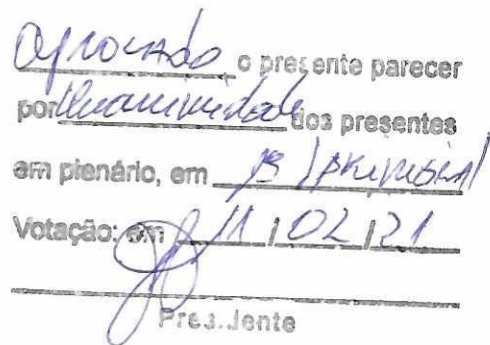 Aprovado o presente parecer
por Unanimidade dos presentes
em plenário, em 1ª (PRIMEIRA)
Votação: em 11 / 02 / 21
Presidente